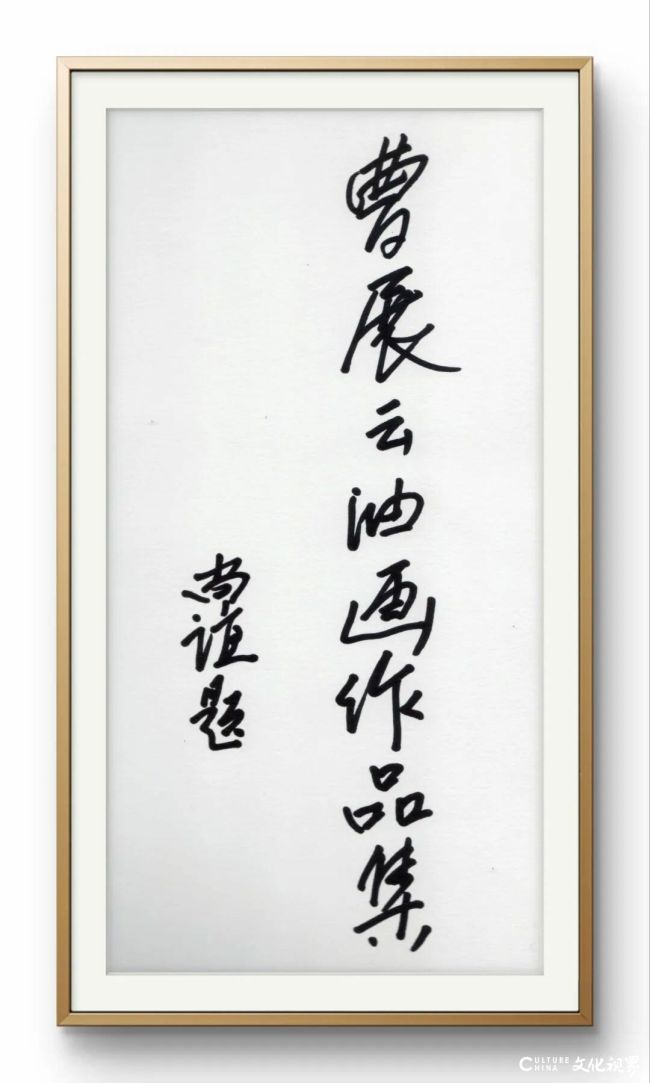 曹展云油画作品集
尚谊题
CULTURE CHINA 文化视界